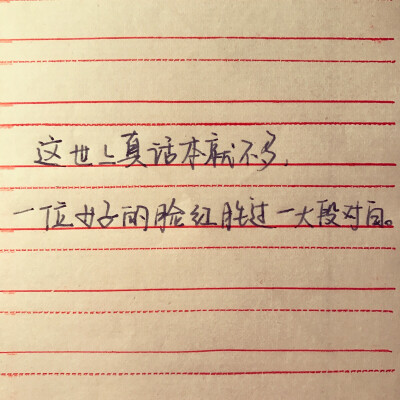 这世上真话本就不多,
一位女子的脸红胜过一大段对白。